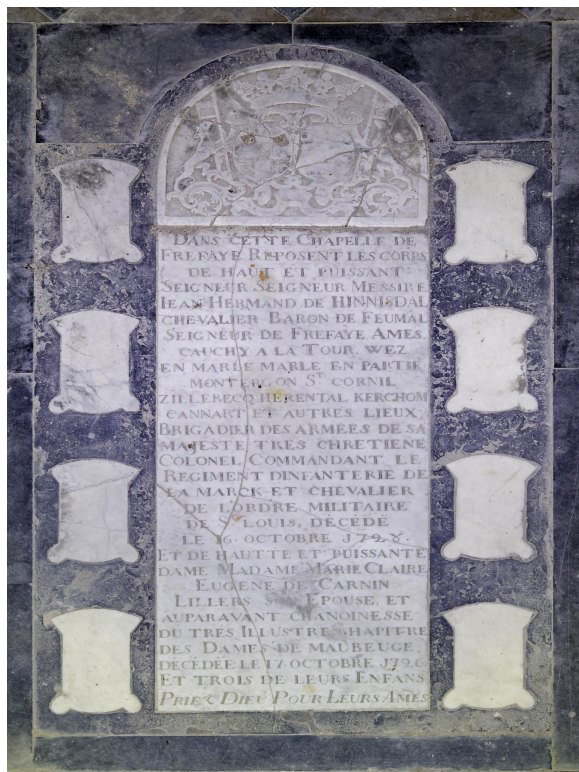 DANS CETTE CHAPELLE DE
FREFAYE REPOSENT LES CORPS
DE HAUT ET PUISSANT
SEIGNEUR SEIGNEUR MESSIRE
IEAN HERMAND DE HINNISDAL
CHEVALIER BARON DE FEUMAL
SEIGNEUR DE FREFAYE AMES
CAUCHY A LA TOUR WEZ
EN MARLE MARLE EN PARTIE
MONTERGON ST CORNIL
ZILLEBECQ HERENTAL KERCHOM
CANNART ET AUTRES LIEUX,
BRIGADIER DES ARMÉES DE SA
MAJESTE TRES CHRETIENE
COLONEL COMMANDANT LE
REGIMENT DINFANTERIE DE
LA MARCK ET CHEVALIER
DE L'ORDRE MILITAIRE
DE ST LOUIS, DÉCÉDÉ
LE 16 OCTOBRE
ET DE HAUTTE ET PUISSANTE
DAME MADAME MARIE CLAIRE
EUGENE DE CARNIN
LILLERS SON EPOUSE, ET
AUPARAVANT CHANOINESSE
DU TRES ILLUSTRE CHAPITRE
DES DAMES DE MAUBEUGE,
DÉCÉDÉE LE 17 OCTOBRE 1726
ET TROIS DE LEURS ENFANS
PRIEZ DIEU POUR LEURS AMES